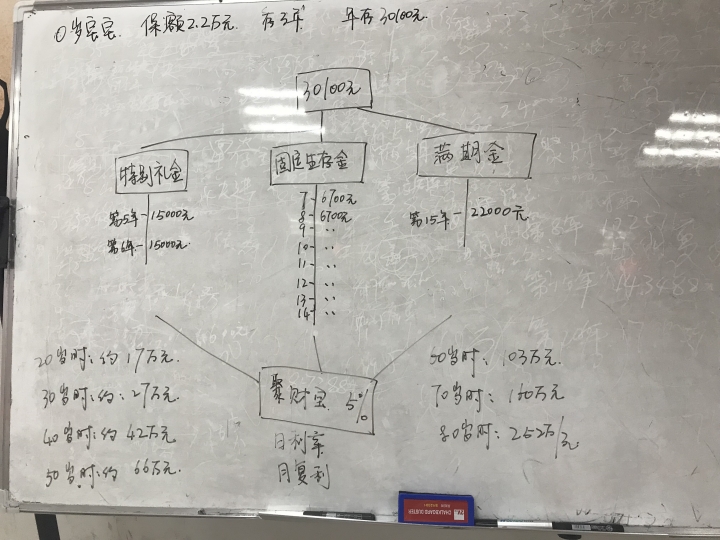 0岁宝宝. 保额2.2万元 存3年 年存30100元.
30100元
特别礼金
第5年-15000元
第6年-15000元
固定生存金
7-6700元
8-6700元
9-〃
10-〃
11-〃
12-〃
13-〃
14-〃
满期金
第15年-22000元
20岁时:约17万元.
30岁时:约:27万元.
40岁时:约42万元
50岁时:约66万元.
聚财宝 5%
日利率
月复利
103万元.
70岁时:160万元
80岁时:252万/元